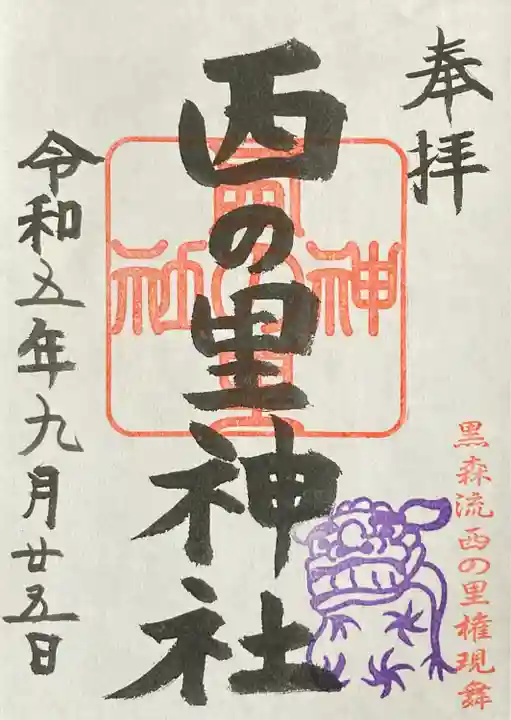 奉拝
西の里神社
神西の里社
令和五年九月廿五日
黒森流西の里権現舞